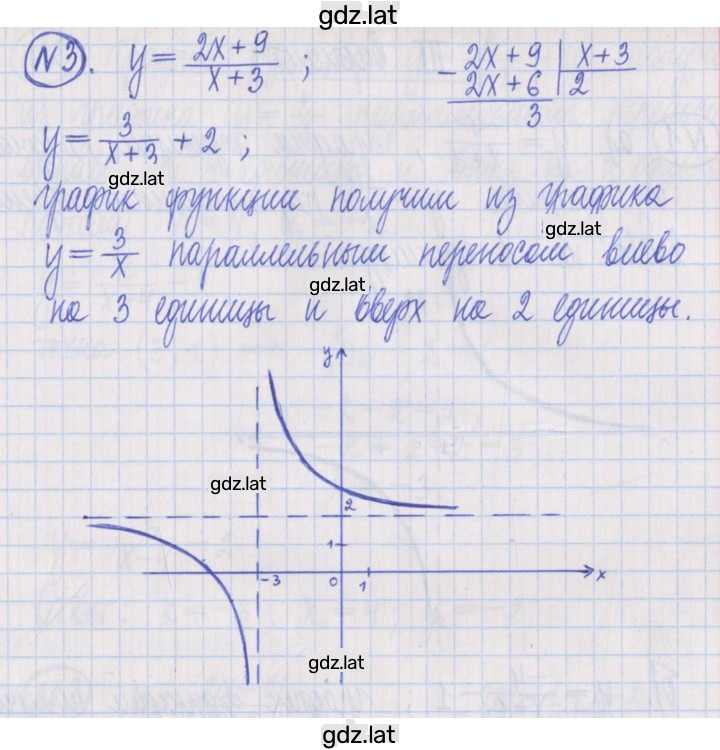 gdz.lat
N3. y = (2x+9)/(x+3) ; - 2x+9 | x+3
2x+6 | 2
3
y = 3/(x+3) + 2 ;
gdz.lat
график функции получим из графика
gdz.lat
y = 3/x параллельным переносом влево
gdz.lat
на 3 единицы и вверх на 2 единицы.
y
gdz.lat
2
1
-3 0 1 x
gdz.lat
gdz.lat